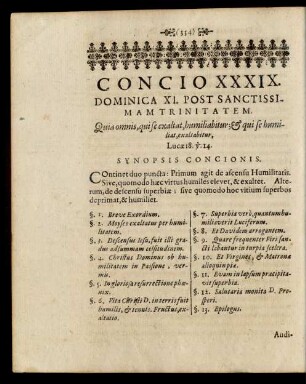 (334)
CONCIO XXXIX.
DOMINICA XI. POST SANCTISSI-
MAM TRINITATEM.
Quia omnis, qui se exaltat, humiliabitur: & qui se humi-
liat, exaltabitur,
Lucæ 18. ℣. 14.
SYNOPSIS CONCIONIS.
COntinet duo puncta: Primum agit de ascensu Humilitatis.
Sive, quomodo hæc virtus humiles elevet, & exaltet. Alte-
rum, de descensu superbiæ: sive quomodo hoc vitium superbos
deprimat, & humiliet.
§. 1. Breve Exordium.
§. 2. Moyses exaltatur per humi-
litatem.
§. 3. Descensus iste, fuit illi gra-
dus ad summam celsitudinem.
§. 4. Christus Dominus ob hu-
militatem in Passione, ver-
mis.
§. 5. In gloriosa resurrectione phœ-
nix.
§. 6. Vita Christi D. in terris fuit
humilis, & tenuis. Fructus, ex-
altatio.
§. 7. Superbia verò, quantum hu-
miliaverit Luciferum.
§. 8. Et Davidem arrogantem.
§. 9. Quare frequenter Viri san-
cti labantur in turpia scelera.
§. 10. Et Virgines, & Matronæ
alloquin piæ.
§. 11. Evam in lapsum præcipita-
vit superbia.
§. 12. Salutaria monita D. Pro-
speri.
§. 13. Epilogus.
Audi-